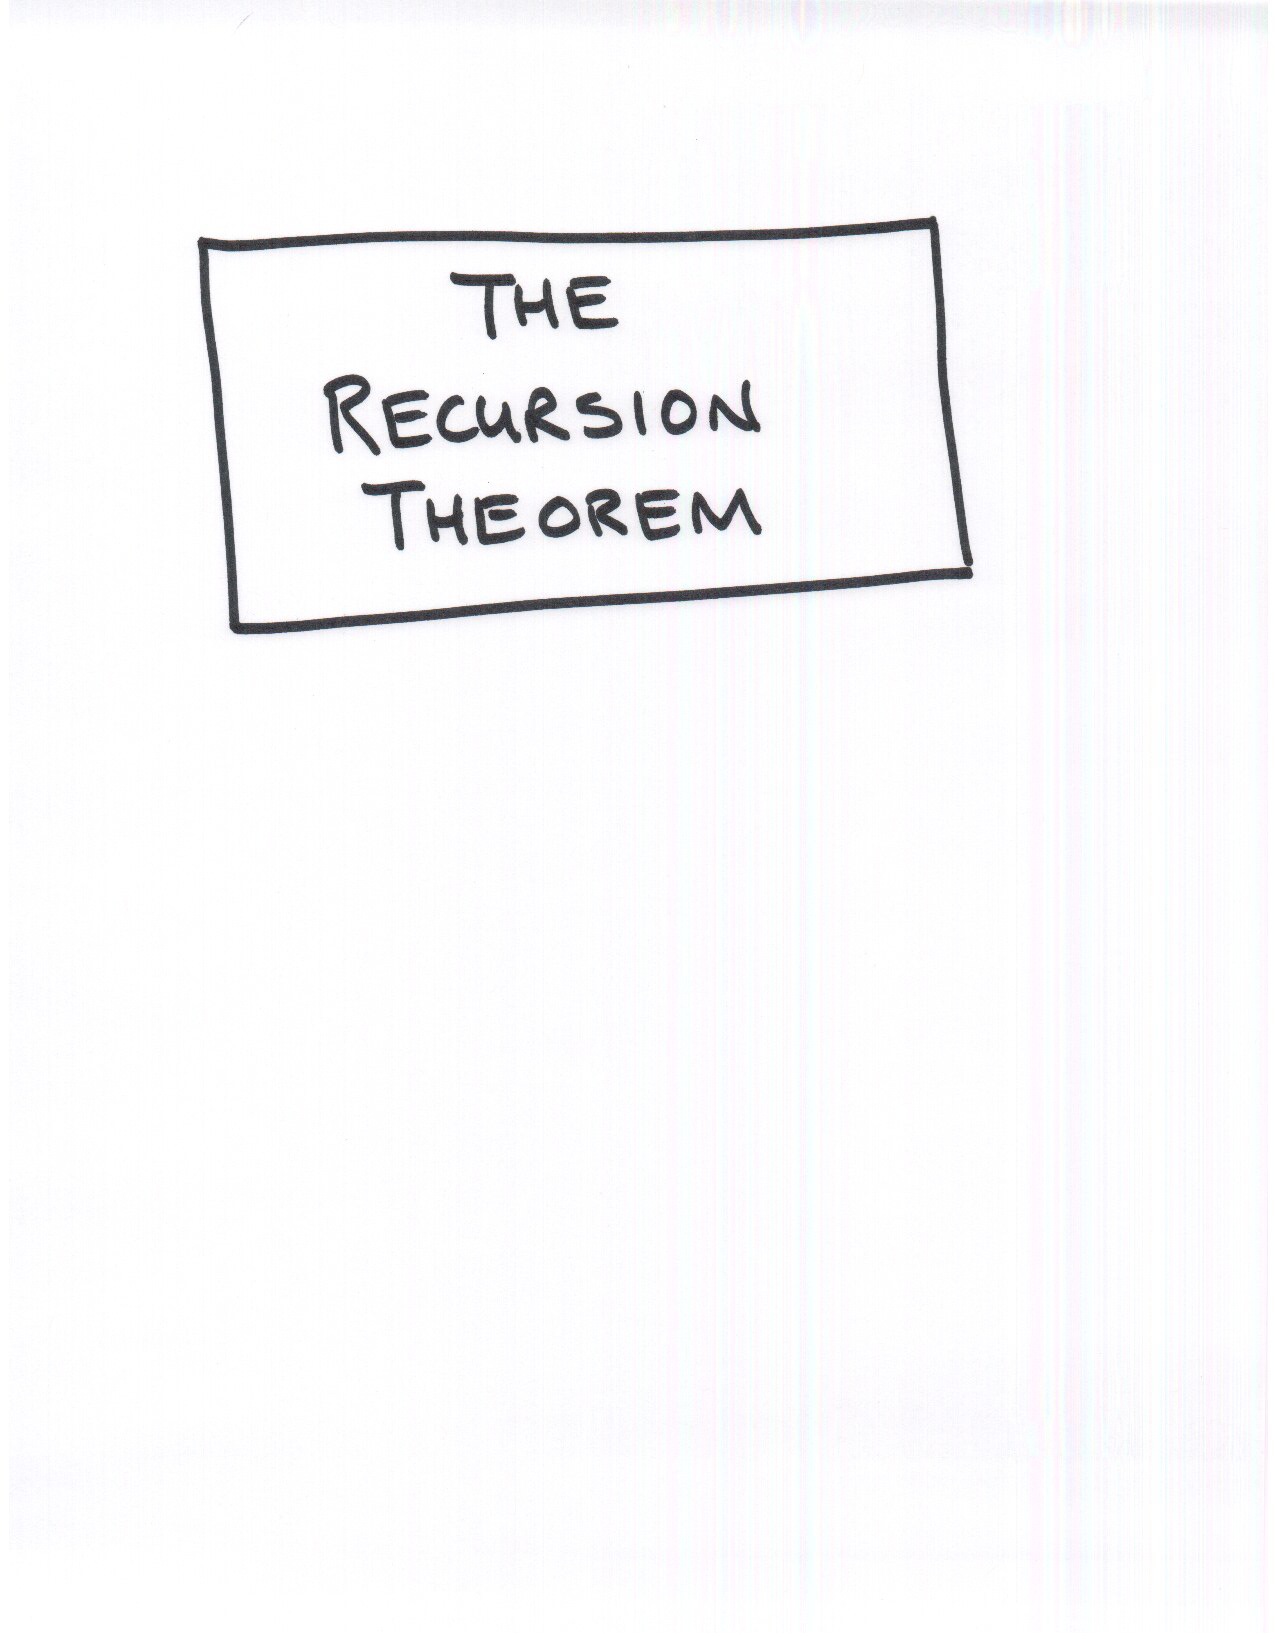 THE
RECURSION
THEOREM